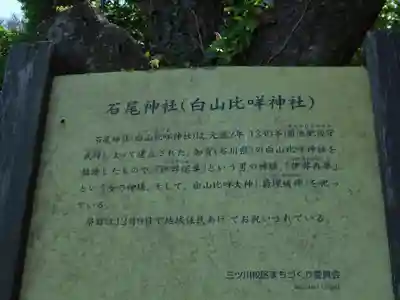 石尾神社(白山比咩神社)
石尾神社(白山比咩神社)は元徳2年
よって建立された。加賀(石川県)の白山比咩神社を
したもので、「伊弉諾尊」という男の神様、「伊弉冉尊」
という女の神様、そして、白山比咩大神を祀っ
ている。
祭日は12月9日で地域住民あげてお祝いされている。
三ツ川校区まちづくり委員会